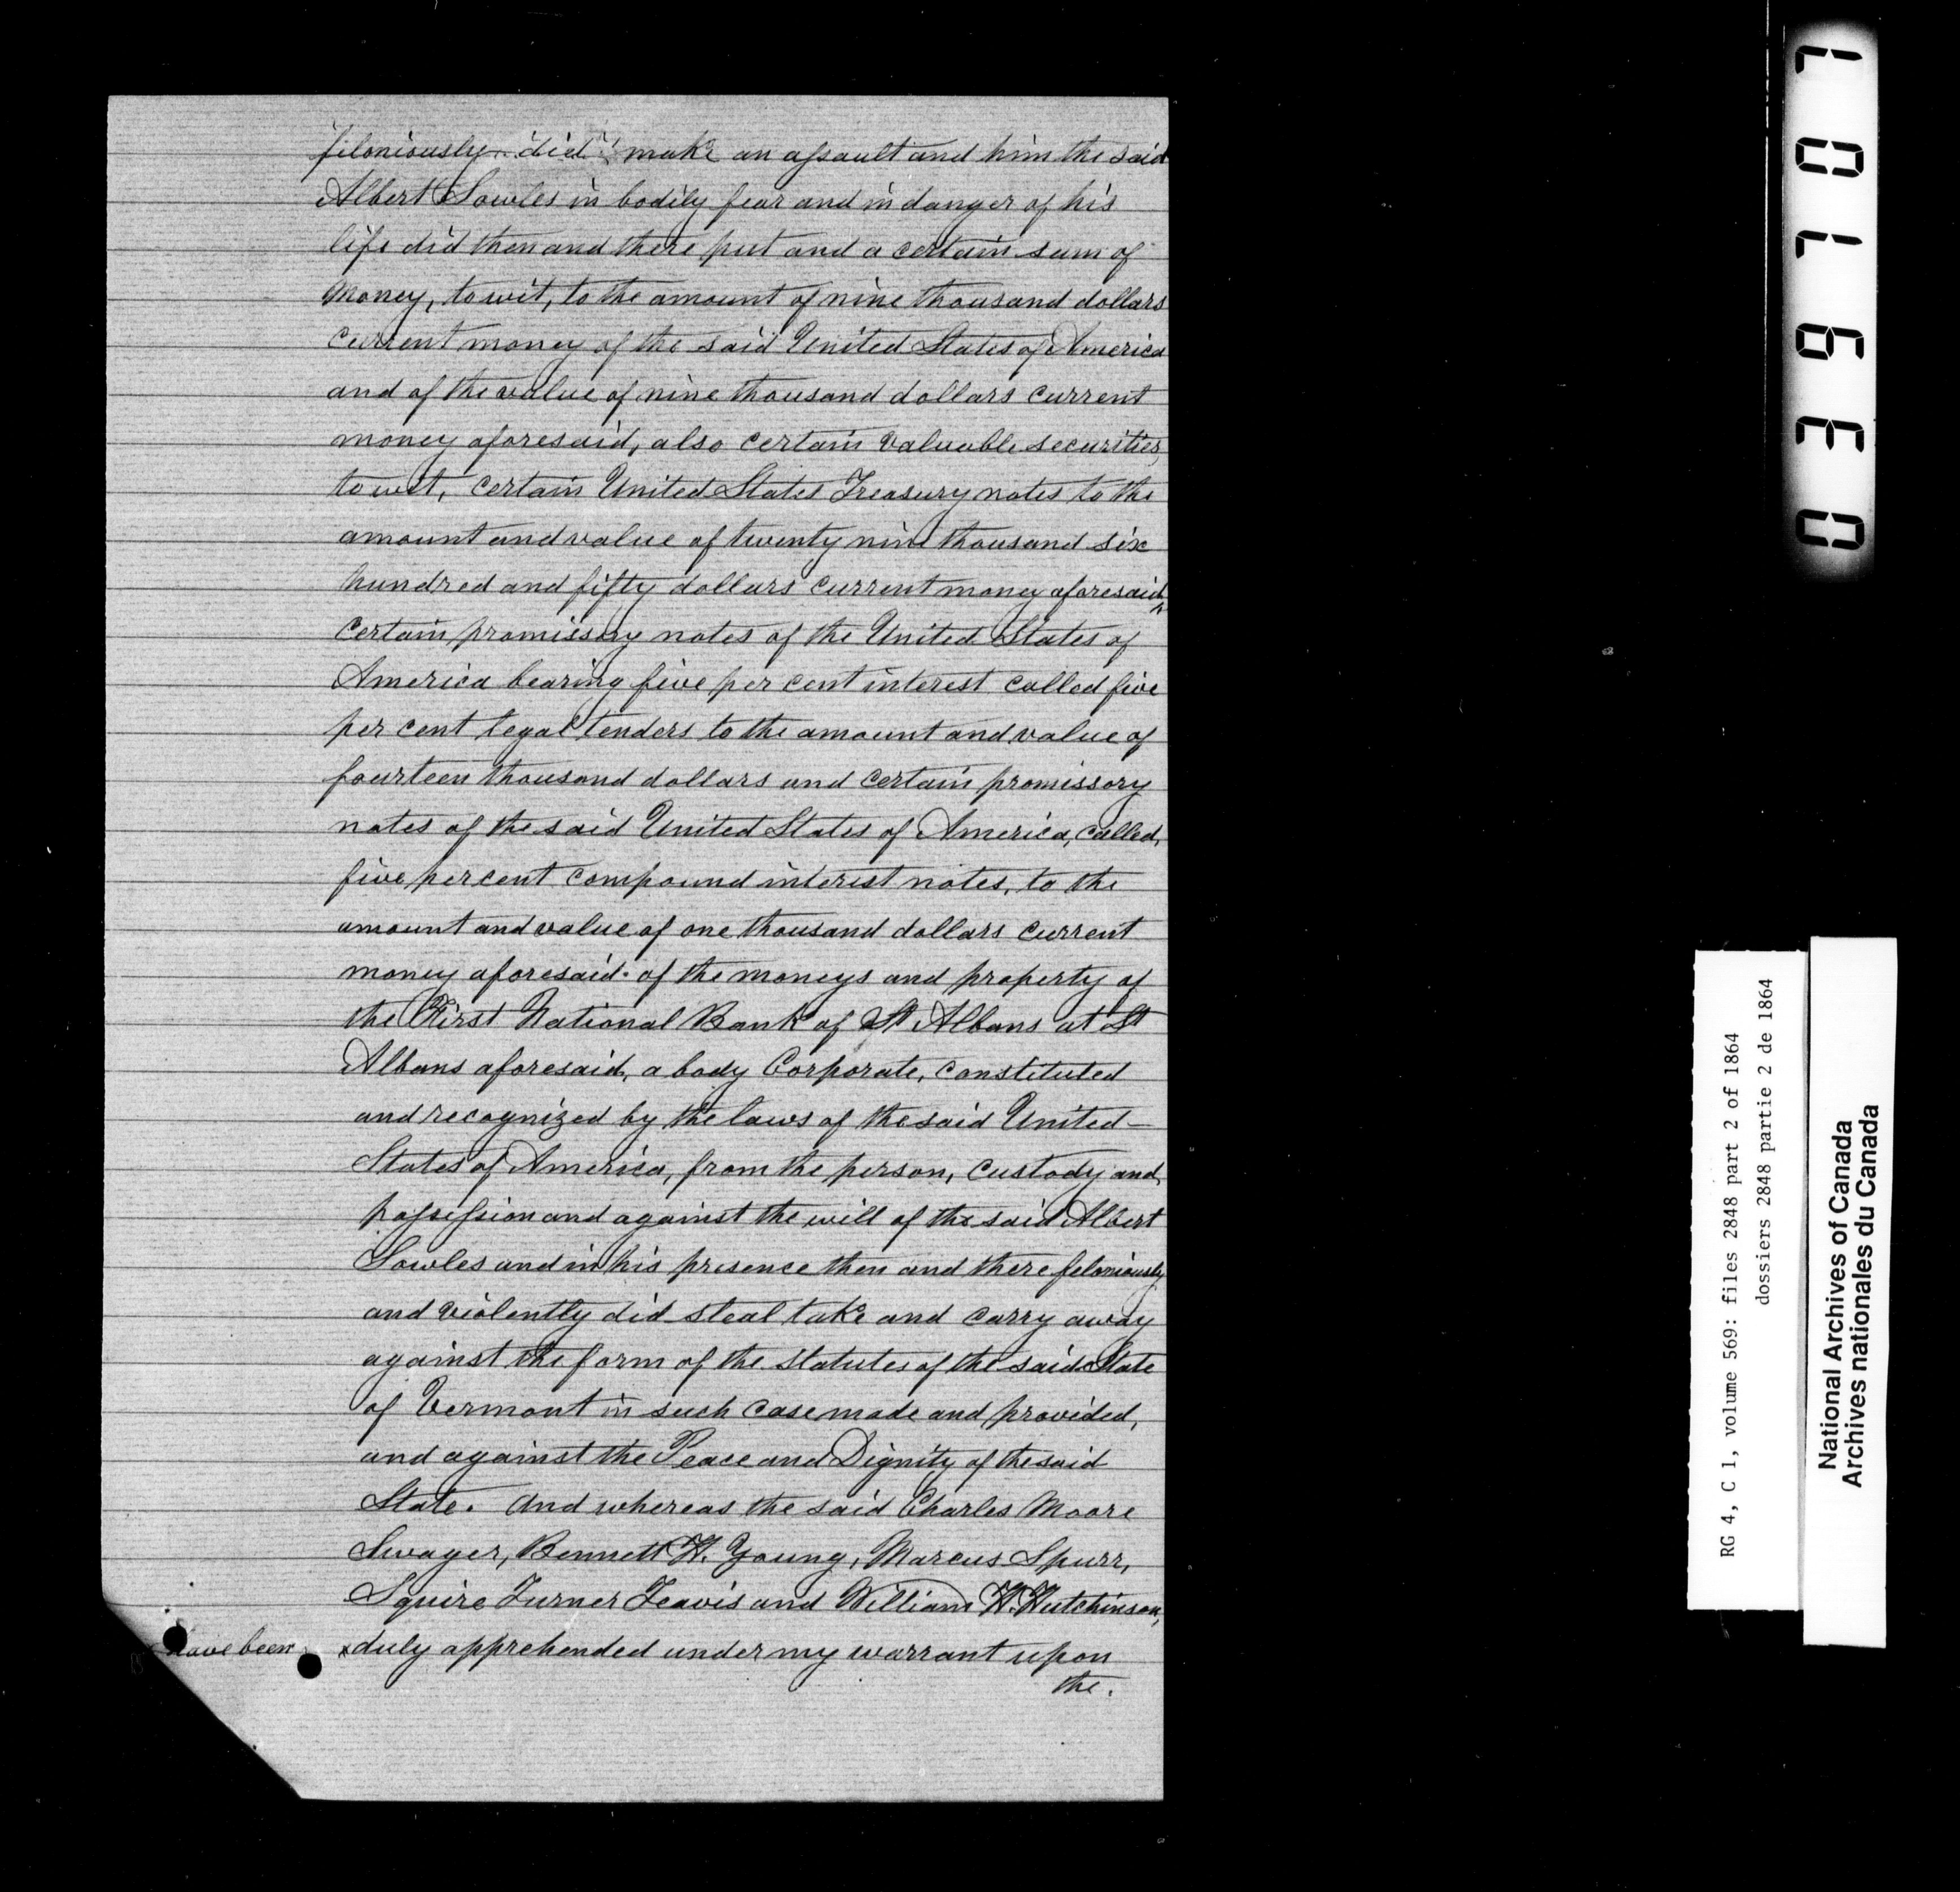 feloniously did make an assault and him the said
Albert Sowles in bodily fear and in danger of his
life did then and there put and a certain sum of
Money, to wit, to the amount of nine thousand dollars
current money of the said United States of America
and of the value of nine thousand dollars current
money aforesaid, also certain valuable securities,
to wit, certain United States Treasury notes to the
amount and value of twenty nine thousand six
hundred and fifty dollars current money aforesaid,
certain promissory notes of the United States of
America bearing five per cent interest called five
per cent legal tenders to the amount and value of
fourteen thousand dollars and certain promissory
notes of the said United States of America, called,
five per cent compound interest notes, to the
amount and value of one thousand dollars current
money aforesaid. of the moneys and property of
the First National Bank of St Albans at St
Albans aforesaid, a body Corporate, constituted
and recognized by the laws of the said United-
States of America, from the person, custody and
possession and against the will of the said Albert
Sowles and in his presence then and there feloniously
and violently did steal take and carry away
against the form of the statutes of the said State
of Vermont in such case made and provided,
and against the Peace and Dignity of the said
State. And whereas the said Charles Moore
Swager, Bennett H. Young, Marcus Spurr,
Squire Turner Teavis and William H. Hutchinson,
have been x duly apprehended under my warrant upon
the.
039107
RG 4, C 1, volume 569: files 2848 part 2 of 1864
dossiers 2848 partie 2 de 1864
National Archives of Canada
Archives nationales du Canada